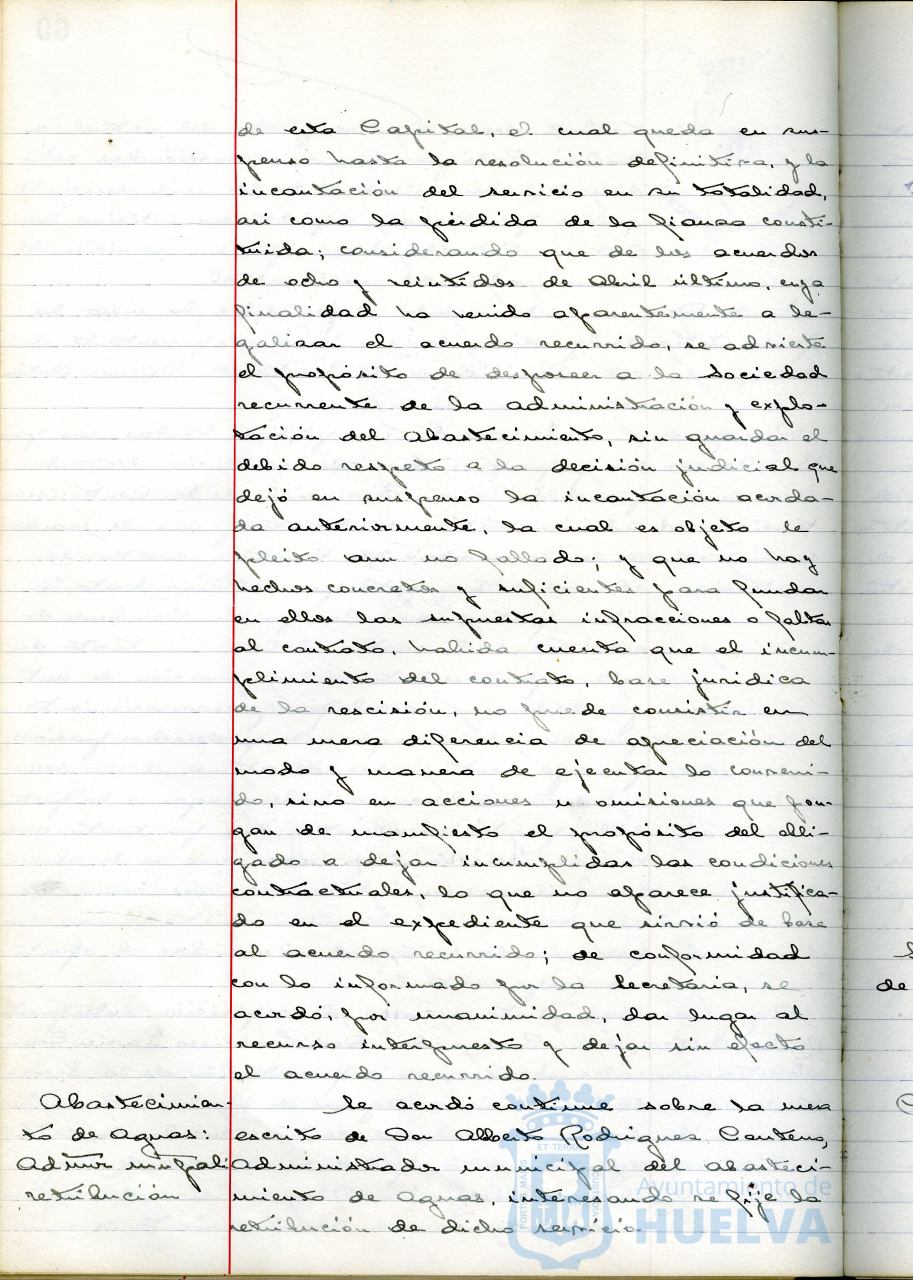 de esta Capital, el cual queda en sus-
penso hasta la resolución definitiva, y la
incautación del servicio en su totalidad,
asi como la pérdida de la fianza consti-
tuida; considerando que de los acuerdos
de ocho y veintidos de Abril último, cuya
finalidad ha venido aparentemente a le-
galizar el acuerdo recurrido, se advierte
el propósito de desposeer a la Sociedad
recurrente de la administración y explo-
tación del Abastecimiento, sin guardar el
debido respeto a la decisión judicial que
dejó en suspenso la incautación acorda-
da anteriormente, la cual es objeto de
pleito aun no fallado; y que no hay
hechos concretos y suficientes para fundar
en ellos las supuestas infracciones o faltas
al contrato, habida cuenta que el incum-
plimiento del contrato, base juridica
de la rescisión, no puede consistir en
una mera diferencia de apreciación del
modo y manera de ejecutar lo conveni-
do, sino en acciones u omisiones que pon-
gan de manifiesto el propósito del obli-
gado a dejar incumplidas las condiciones
contractuales, lo que no aparece justifica-
do en el expediente que sirvió de base
al acuerdo recurrido; de conformidad
con lo informado por la Secretaria, se
acordó, por unanimidad, dar lugar al
recurso interpuesto y dejar sin efecto
el acuerdo recurrido.
Abastecimien-
to de aguas:
Admor munpal
retribución
Se acordó continue sobre la mesa
escrito de Don Alberto Rodriguez Centeno,
Administrador municipal del abasteci-
miento de aguas, interesando se fije la
retribución de dicho servicio.
Ayuntamiento de
HUELVA